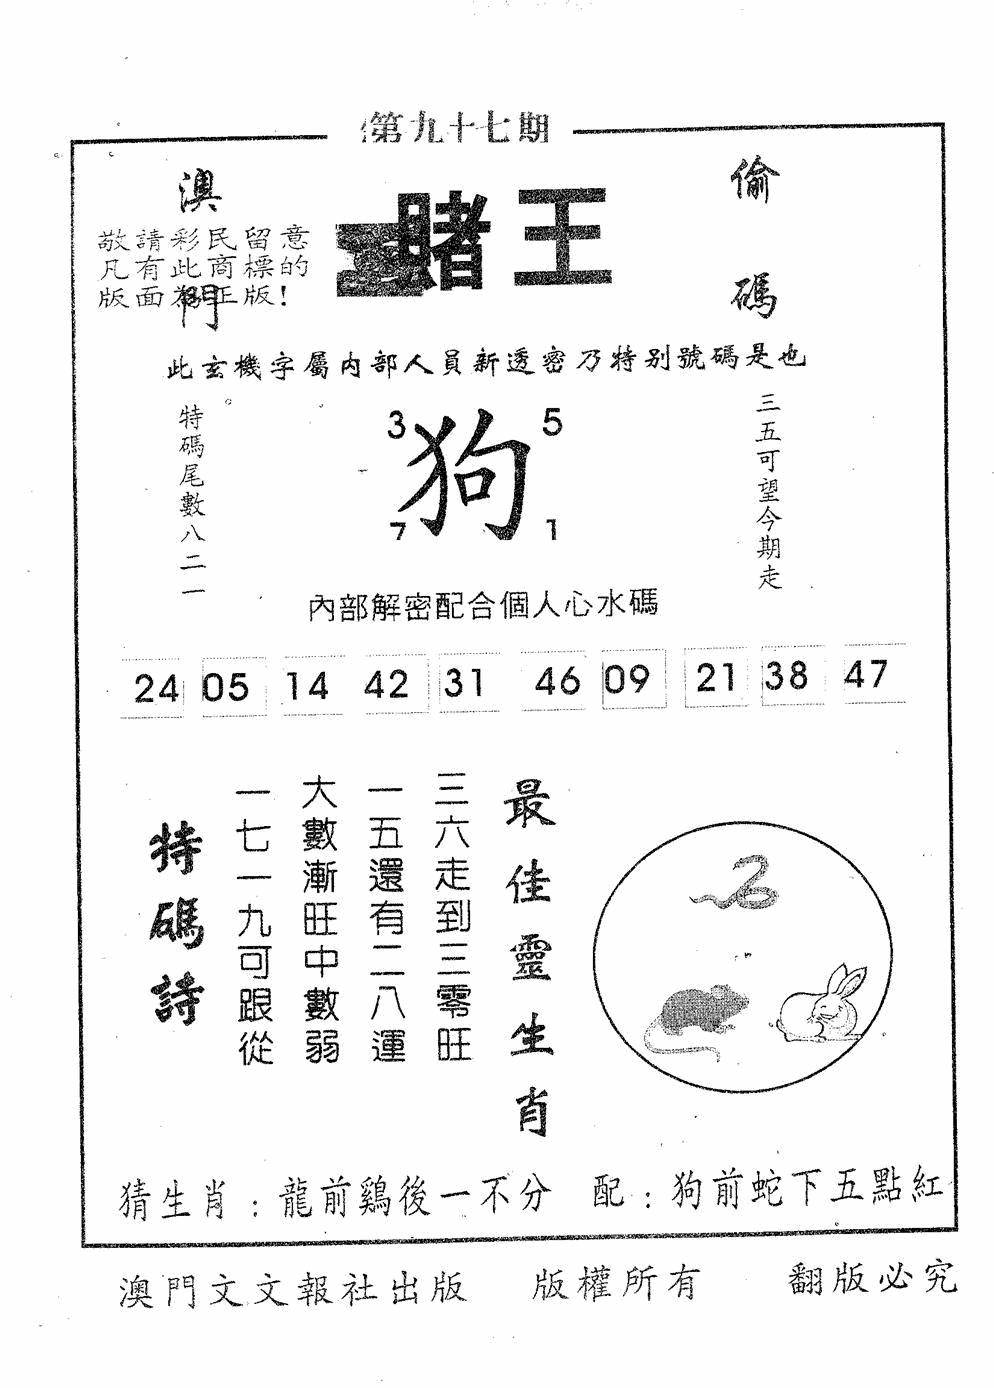 第九十七期
澳門
賭王
偷碼
敬請彩民留意
凡有此商標的
版面為正版!
此玄機字屬內部人員新透密乃特别號碼是也
特碼尾數八二一
3 5
狗
7 1
三五可望今期走
內部解密配合個人心水碼
24 05 14 42 31 46 09 21 38 47
最佳靈生肖
三六走到三零旺
一五還有二八運
大數漸旺中數弱
一七一九可跟從
特碼詩
猜生肖:龍前鷄後一不分 配:狗前蛇下五點紅
澳門文文報社出版 版權所有 翻版必究